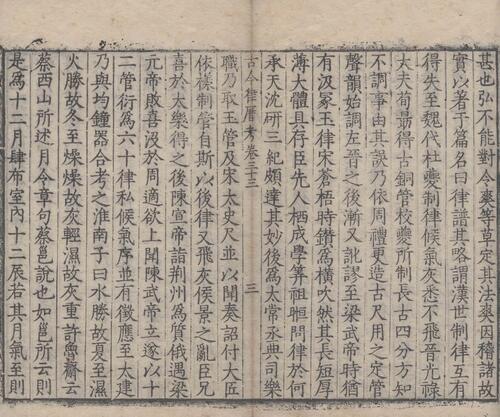 甚也弘不能對令爽等草定其法爽因稽諸故
實以著于篇名曰律譜其略謂漢世制律互有
得失至魏代杜夔制律候氣灰悉不飛晉光祿
大夫荀勗得古銅管校夔所制長古四分方知
不調事由其誤乃依周禮更造古尺用之定管
聲韻始調左晉之後漸又訛謬至梁武帝時猶
有汲冢玉律宋蒼梧時鑽爲橫吹然其長短厚
薄大體具存臣先人栖成學算祖暅問律於何
承天沈研三紀頗達其妙後爲太常丞典司樂
古今律曆考卷三十三 三
職乃取玉管及宋太史尺並以聞奏詔付大匠
依樣制管自斯以後律又飛灰侯景之亂臣兄
喜於太樂得之後陳宣帝詣荆州爲質俄遇梁
元帝敗喜没於周適欲上聞陳武帝立遂以十
二管衍爲六十律私候氣序並有徵應至太建
乃與均鐘器合考之淮南子曰水勝故夏至濕
火勝故冬至燥燥故灰輕濕故灰重許魯齋云
蔡西山所述月令章句蔡邕說也如邕所云則
是爲十二月肆布室內十二辰若其月氣至則